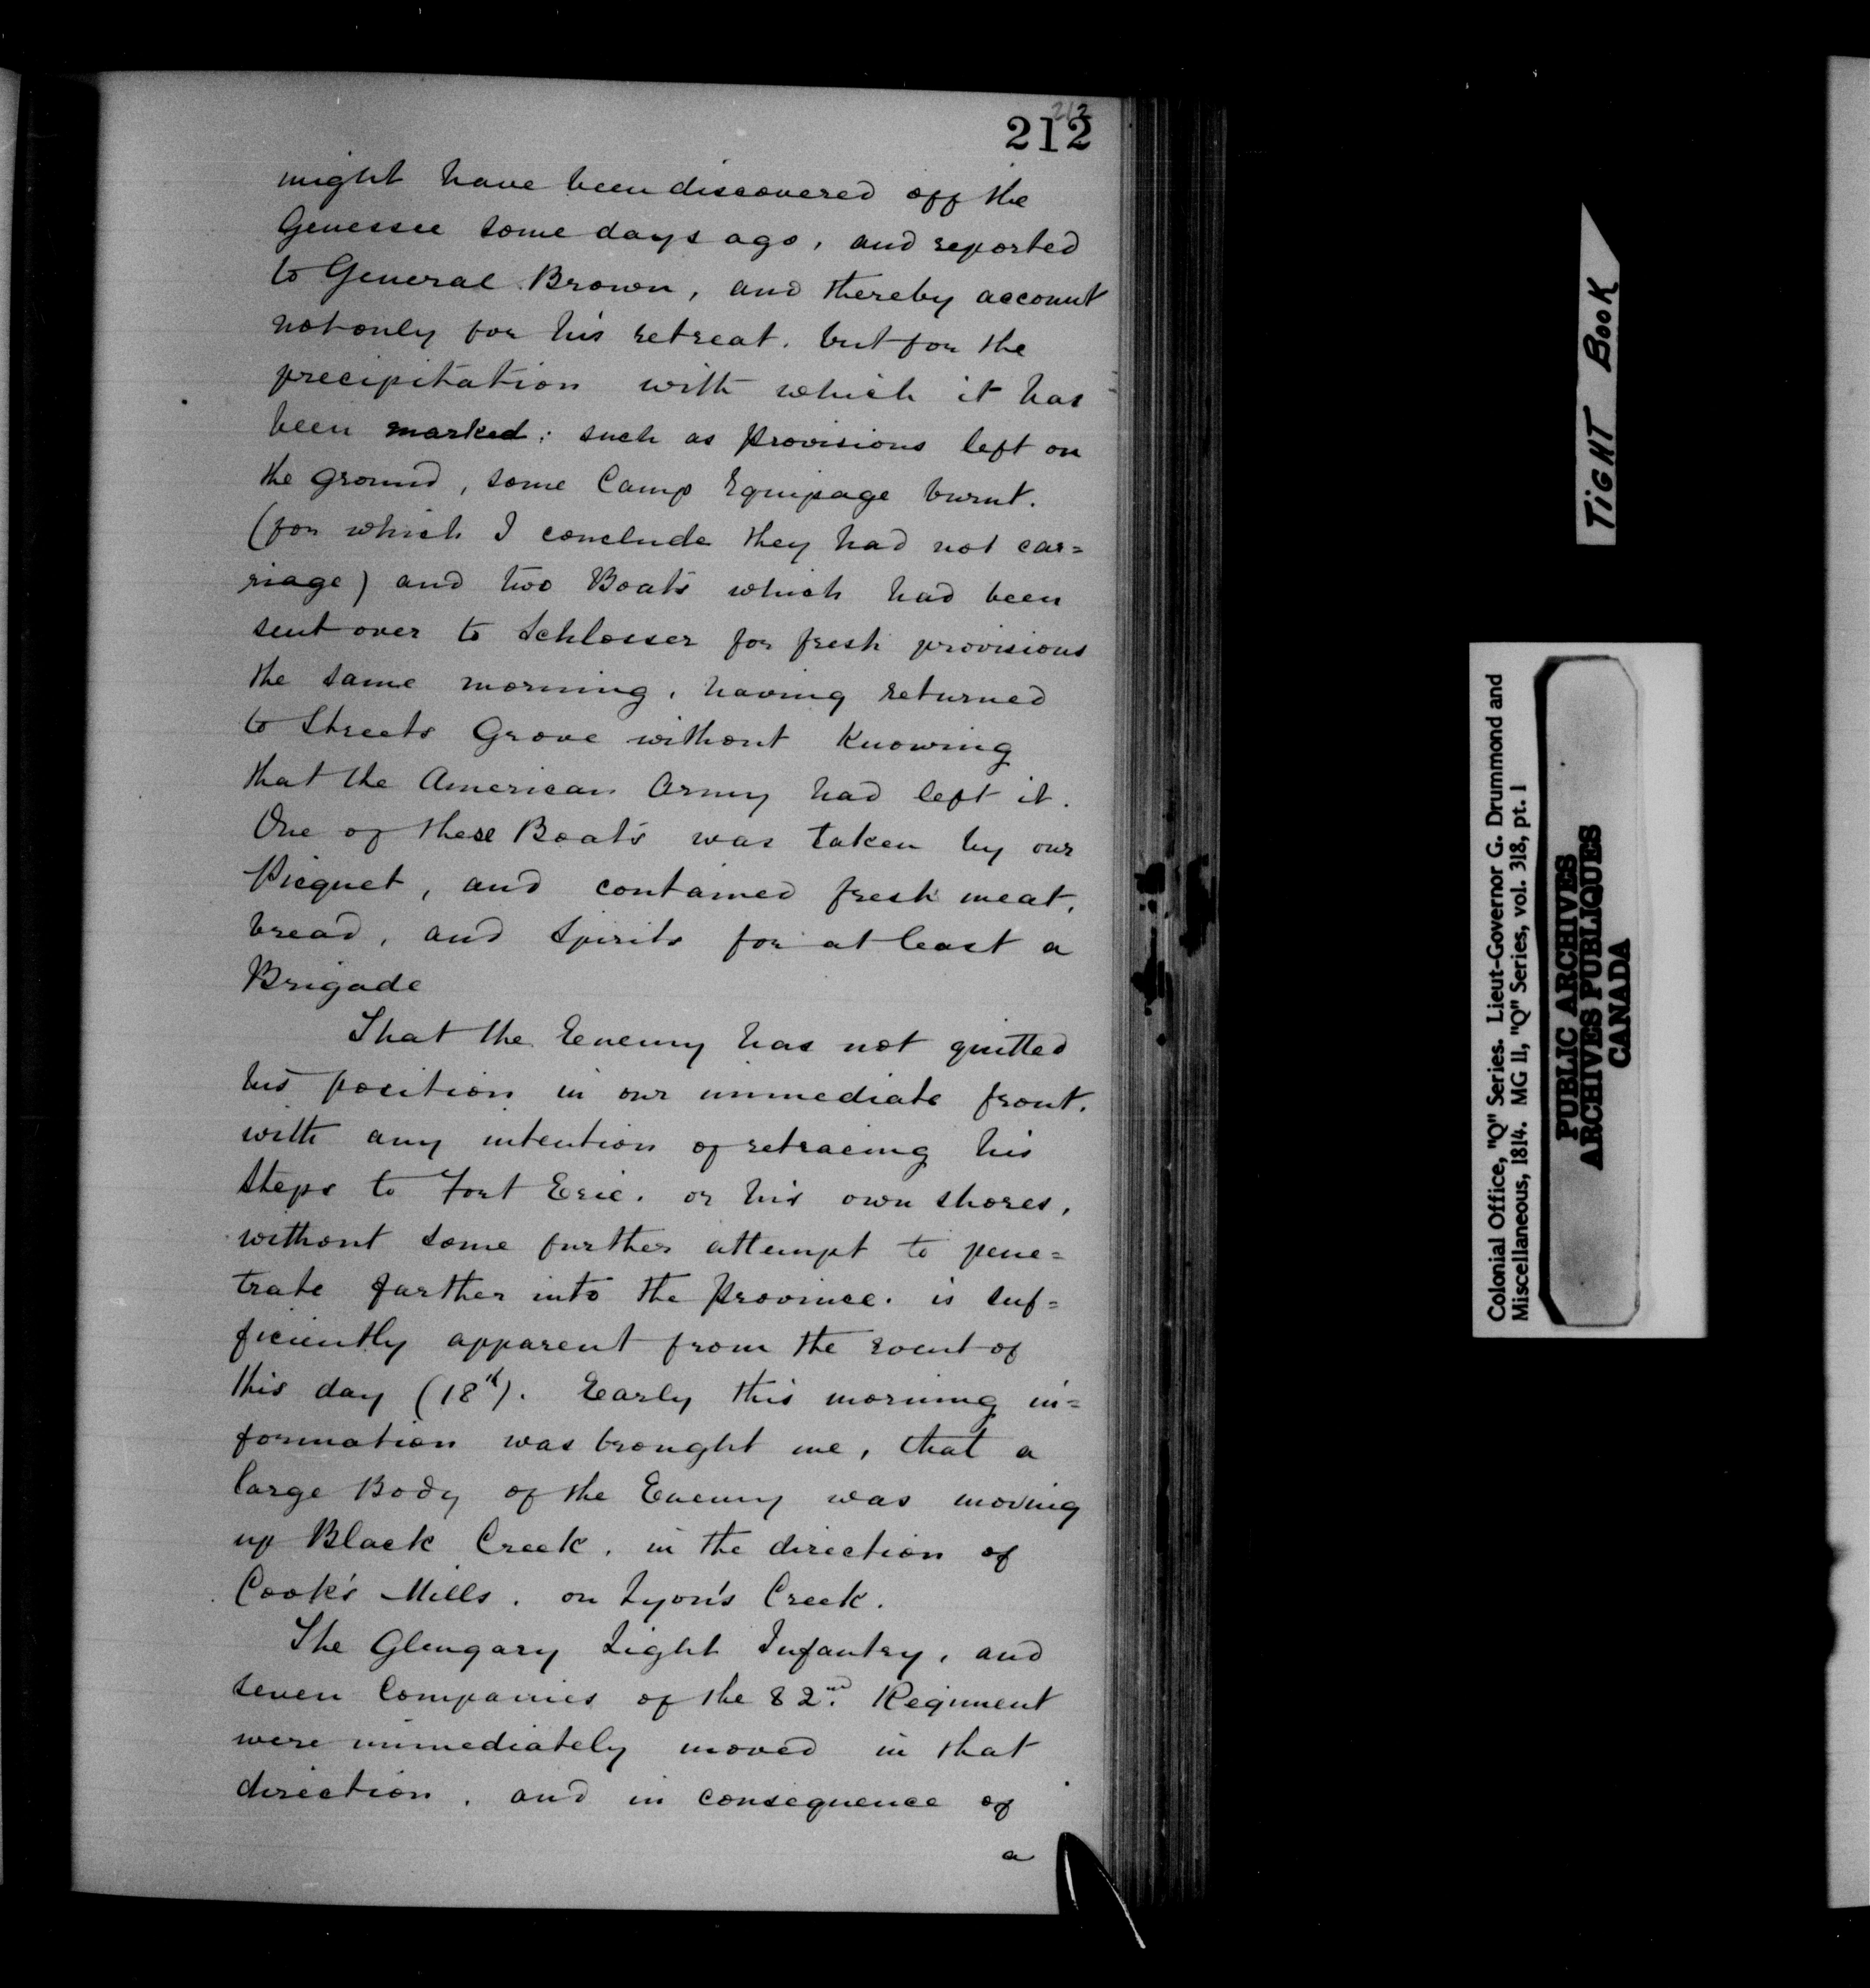 212
212
might have been discovered off the
Genessee some days ago, and reported
to General Brown, and thereby account
not only for his retreat. but for the
precipitation with which it has
been marked; such as provisions left on
the ground, some Camp Equipage burnt.
(for which I conclude they had not car=
riage) and two Boats which had been
sent over to Schlosser for fresh provisions
the same morning, having returned
to Streets Grove without Knowing
that the American Army had left it.
One of these Boats was taken by our
Picquet, and contained fresh meat,
bread, and Spirits for at least a
Brigade
That the Enemy has not quitted
his position in our immediate front.
with any intention of retracing his
Steps to Fort Erie. or his own shores,
without some further attempt to pene=
trate farther into the Province. is suf=
ficiently apparent from the event of
this day (18th). Early this morning in=
formation was brought me, that a
large Body of the Enemy was moving
up Black Creek. in the direction of
Cook's Mills. on Lyon's Creek.
The Glengary Light Infantry, and
seven Companies of the 82nd. Regiment
were immediately moved in that
direction. and in consequence of
a
TiGHT BooK
Colonial Office, "Q" Series. Lieut-Governor G. Drummond and
Miscellaneous, 1814. MG 11, "Q" Series, vol. 318, pt. 1
PUBLIC ARCHIVES
ARCHIVES PUBLIQUES
CANADA